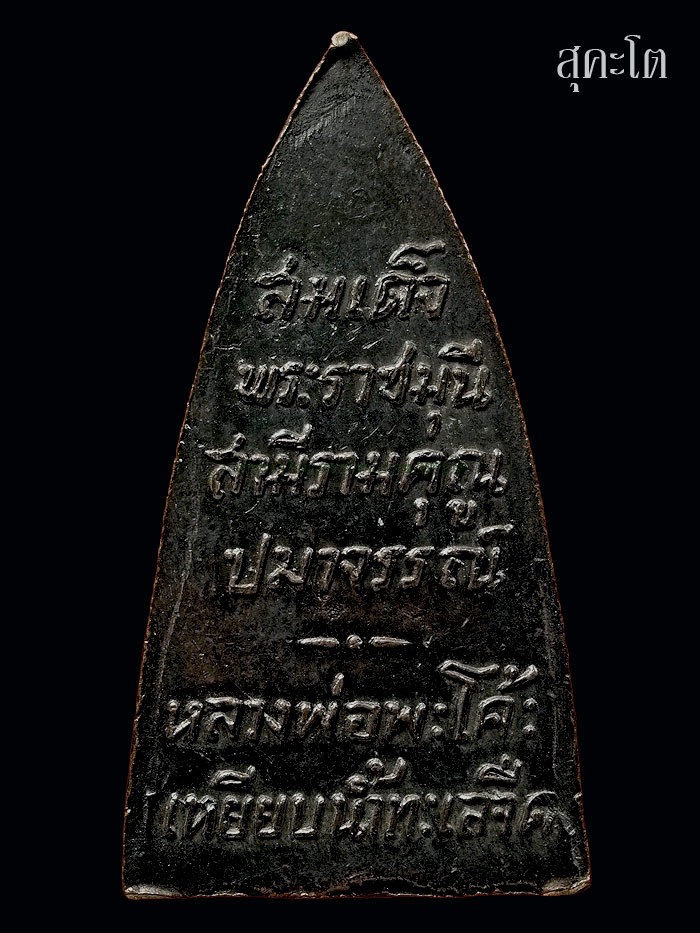 สุคะโต
สมเด็จ
พระราชมุนี
สามีรามคุณู
ปมาจรรธณ์
หลวงพ่อพะโค๊ะ
เหยียบน้ำทะเลจืด